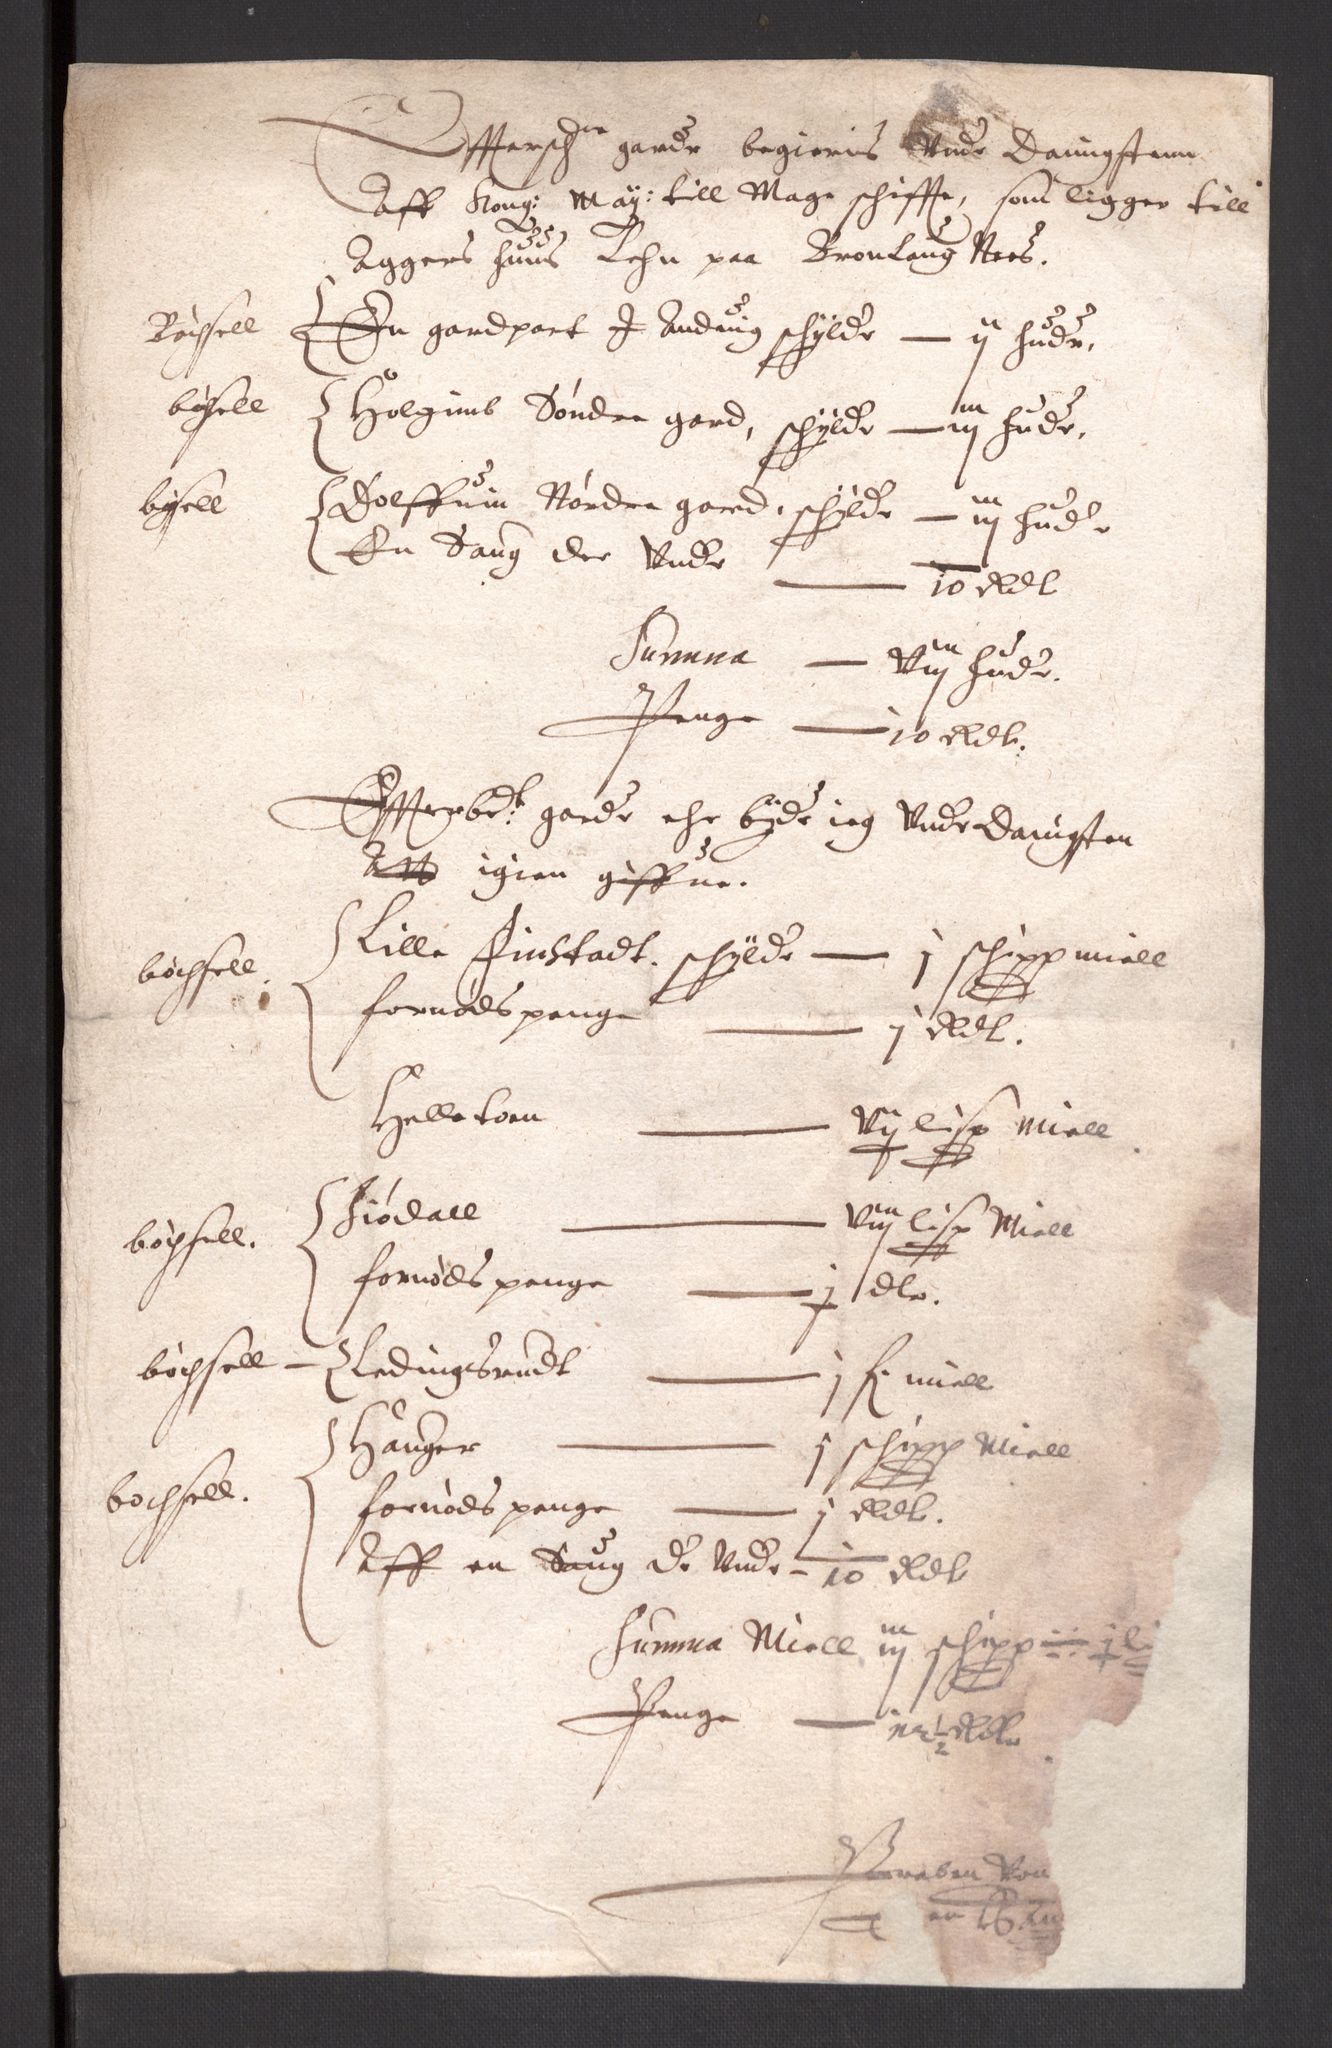 Effterschne garde begieris Unde Danigstenn
Aff Kong: May: till Mage schiffte, som ligger till
Aggers huus Lehn paa Bronlaug Nees.
Bøchsell En gardpart J Anduig schylde — ij hude,
bøchsell Holgims Søndre gard, schylde — iiij hude,
bøgsell Dolffuin Nordre gard, schylde — iiij hude
En Saug der Unde — 10 Rdl
Summa — Viij hude.
Penge — 10 Rdl.
Effterbete garde ehr byde ieg Unde Danigsten
igien giffue.
bøchsell. Lille Finstadt. schylde — j schipp miell
fornøds penge — j Rdl.
Helletoen — Vij lisp Miell
bøchsell. Fiødall — Viij lisp Miell
fornøds penge — j dlr.
bøchsell — Ledingsrudt — j f. miell
bochsell. Hauger — j schipp Miell
fornøds penge — j Rdl.
Aff en Saug de Unde — 10 Rdl
Summa Miell iiij schipp
Penge — 12½ Rdlr